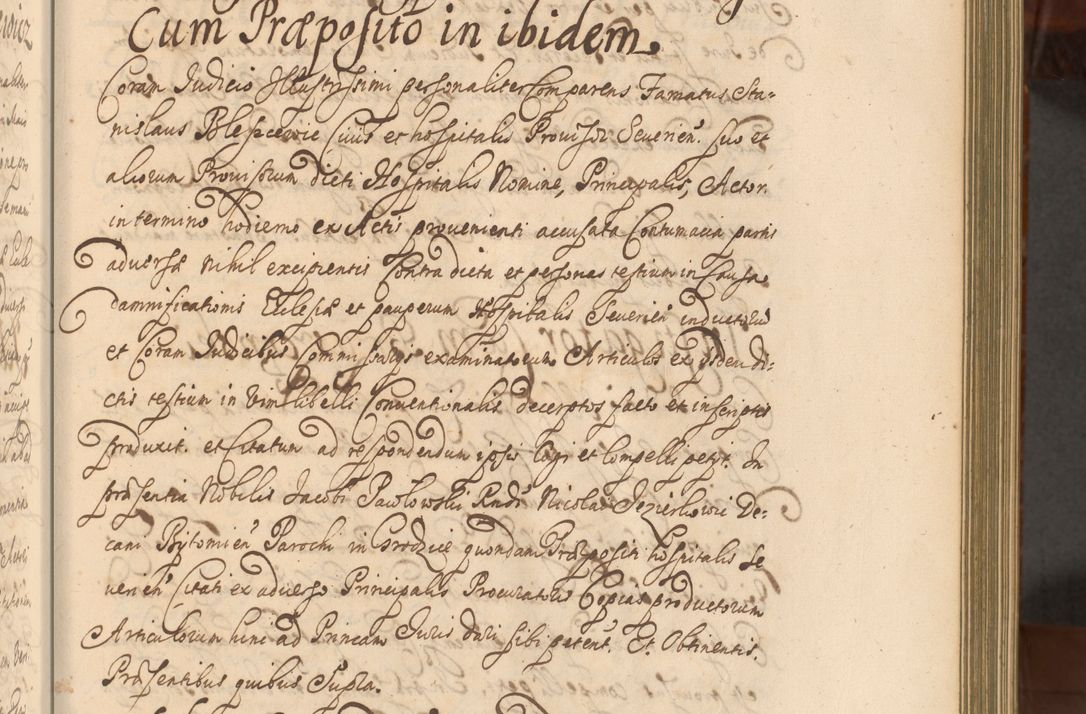 Cum Præposito in ibidem.
Coram Judicio Illustrissimi personaliter Comparens Famatus Sta-
nislaus Ciuis et hospitalis Prouisor Seuerien̄. suo et
aliorum Prouisorum dicti Hospitalis Nomine, Principalis, Actor.
in termino hodierno ex Actis prouenienti accusata Contumacia partis
aduersæ nihil excipientis Contra dicta et personas testium in Causa
damnificationis Ecclesiæ et pauperum Hospitalis Seuerien̄ inductorum
et Coram Judicibus Commissarijs examinatorum Articulos ex ijsdem di-
ctis testium in Vim libelli Conuentionalis decerptos facto et in scriptis
produxit. et Citatum ad respondendum ipsis Cogi et Compelli petijt. In
præsentia Nobilis Jacobi Pawlowski Rndi Nicolai De-
cani Bytomien̄ Parochi in Grodziec quondam Præpositi hospitalis Se
uerien̄ Citati ex aduerso Principalis Procuratoris Copias productorum
Articulorum hinc ad Primam Juris dari sibi petent. Et Obtinentis.
Præsentibus quibus Supra.